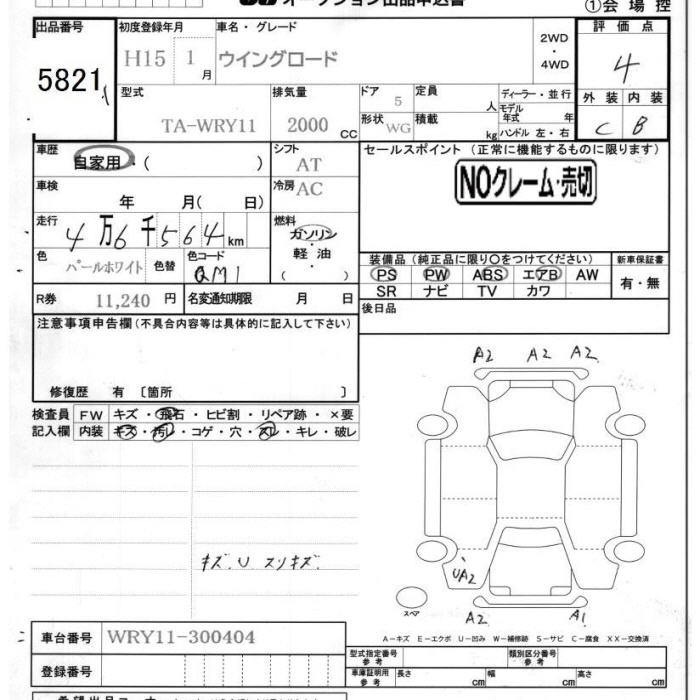 オークション出品申込書
①会場控
出品番号 初度登録年月 車名・グレード 2WD・4WD 評価点
5821 H15 1月 ウイングロード 4
型式 排気量 ドア 5 定員 人 ディーラー・並行 外装 内装
TA-WRY11 2000cc 形状 WG 積載 kg モデル年式 年 ハンドル 左・右 C B
車歴 自家用・( ) シフト AT セールスポイント(正常に機能するものに限ります)
車検 年 月( 日) 冷房 AC NOクレーム・売切
走行 4万6千564km 燃料 ガソリン・軽油・( )
色 パールホワイト 色替 色コード QM1 装備品(純正品に限り○をつけてください) 新車保証書
PS PW ABS エアB AW 有・無
SR ナビ TV カワ
R券 11,240円 名変通知期限 月 日 後日品
注意事項申告欄(不具合内容等は具体的に記入して下さい)
修復歴 有 〔箇所 〕
検査員記入欄 FW キズ・飛石・ヒビ割・リペア跡・×要
内装 キズ・汚レ・コゲ・穴・スレ・キレ・破レ
A2 A2 A2
キズ.U スリキズ
UA2
スペア A2 A1
A-キズ E-エクボ U-凹み W-補修跡 S-サビ C-腐食 XX-交換済
車台番号 WRY11-300404
型式指定番号 参考 類別区分番号 参考
登録番号 車庫証明用 参考 長さ cm 幅 cm 高さ cm